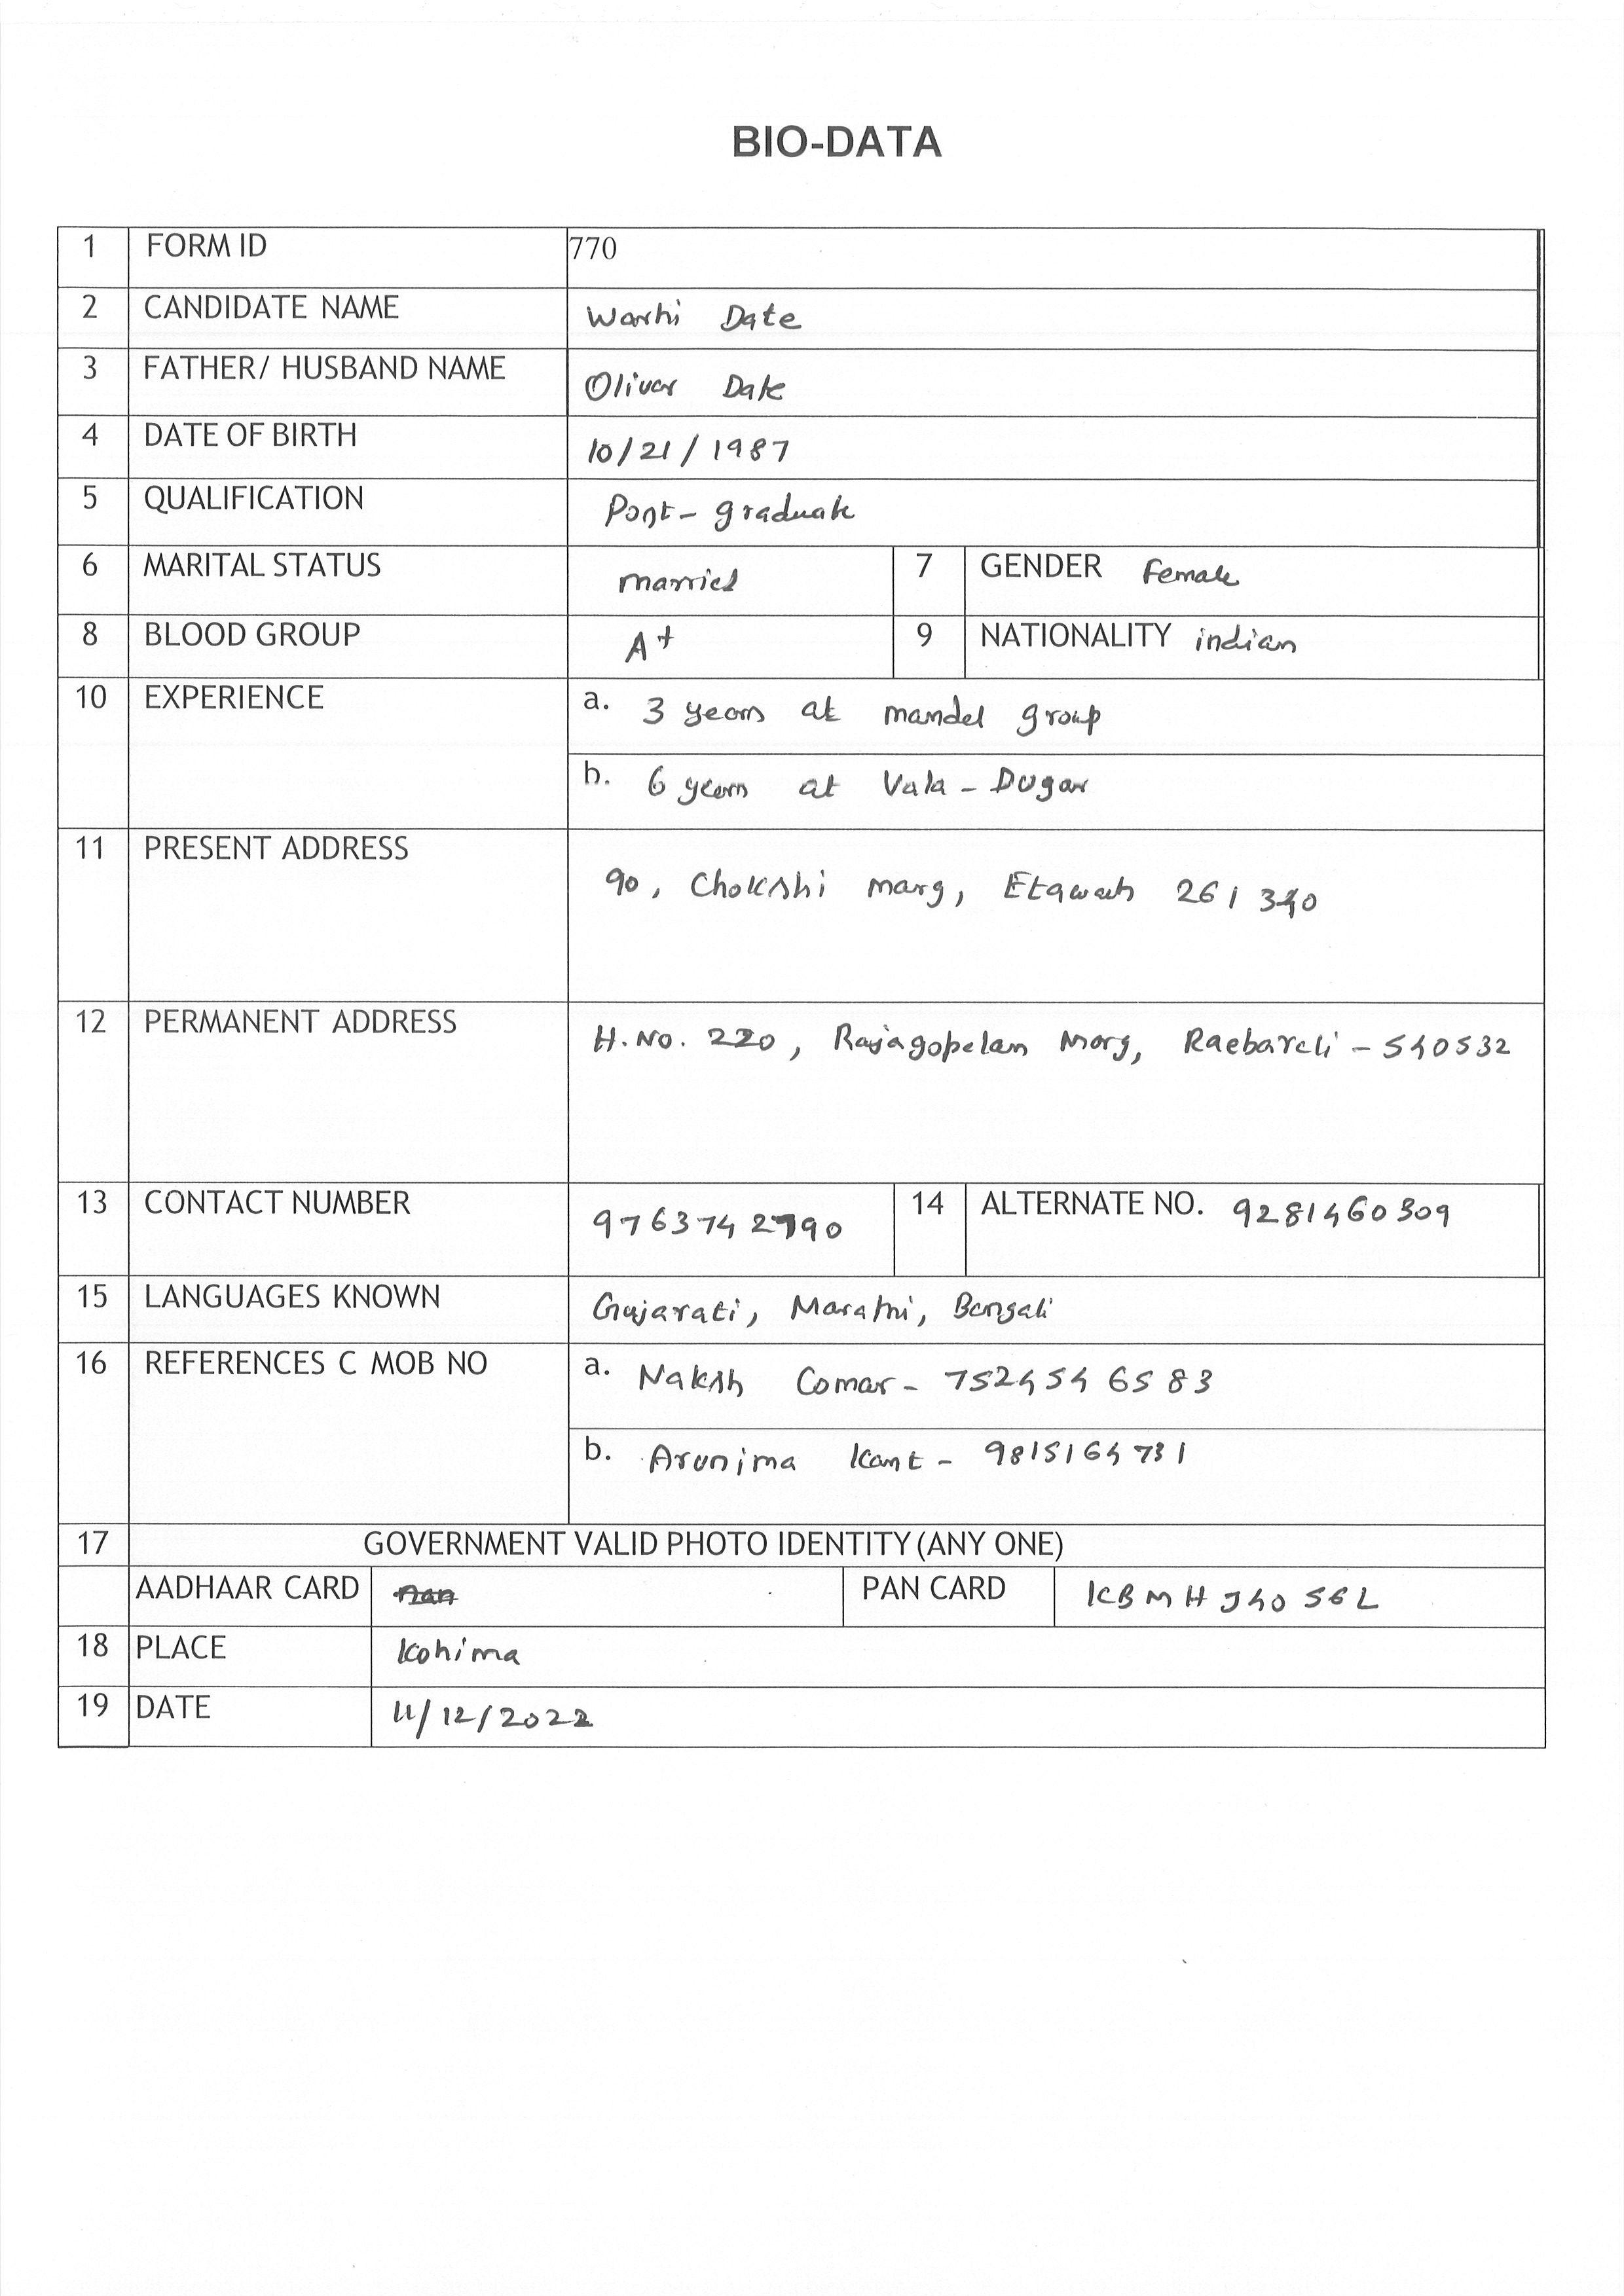 BIO-DATA
1 FORM ID 770
2 CANDIDATE NAME Warhi Date
3 FATHER/ HUSBAND NAME Oliver Date
4 DATE OF BIRTH 10/21/1987
5 QUALIFICATION Post-graduate
6 MARITAL STATUS married 7 GENDER Female
8 BLOOD GROUP A+ 9 NATIONALITY indian
10 EXPERIENCE a. 3 years at mandal group
b. 6 years at Vala-Dugar
11 PRESENT ADDRESS 90, Chokshi marg, Etawah
12 PERMANENT ADDRESS H.No. 220, Rajagopalan Marg, Raebareli - 540532
13 CONTACT NUMBER 14 ALTERNATE NO. 9281460309
15 LANGUAGES KNOWN Gujarati, Marathi, Bengali
16 REFERENCES C MOB NO a. Naksh Comar - 7524546583
b. Arunima Kant - 9815164731
17 GOVERNMENT VALID PHOTO IDENTITY (ANY ONE)
AADHAAR CARD PAN CARD KBMHJ4056L
18 PLACE Kohima
19 DATE 11/12/2022